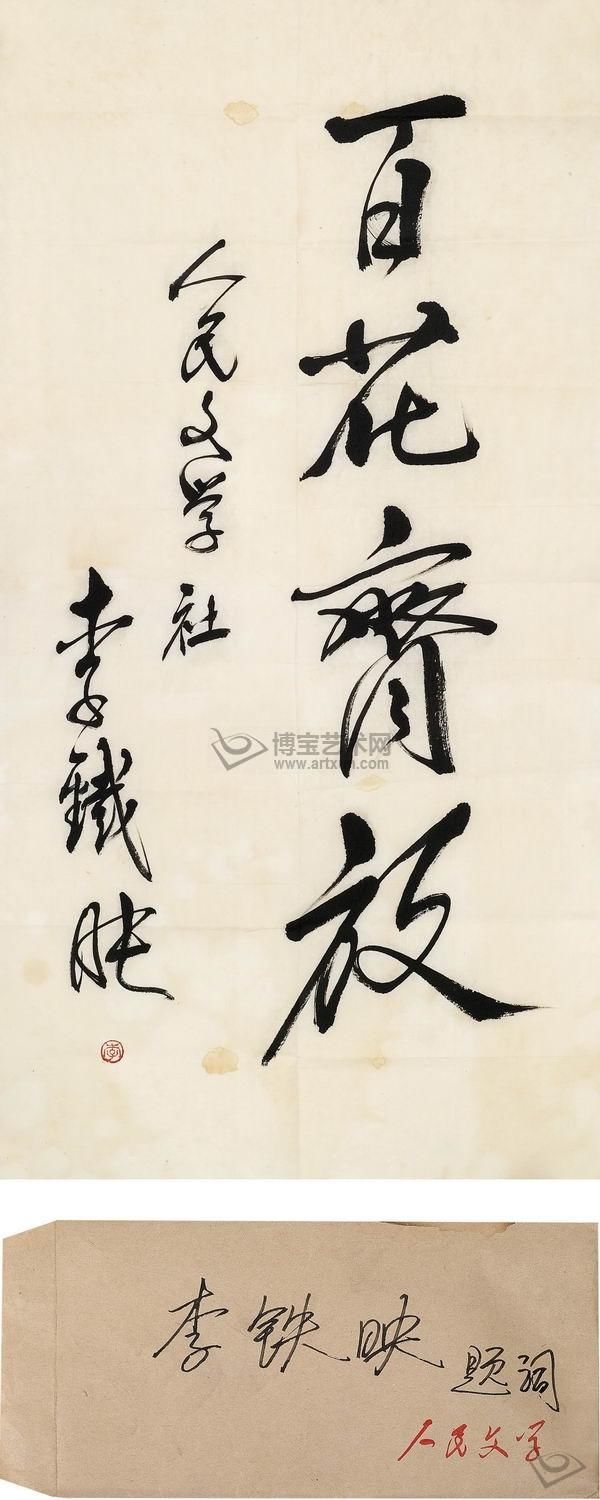 百花齊放
人民文学社
李鐵映
李
博宝艺术网
www.artxun.com
李铁映
题词
人民文学